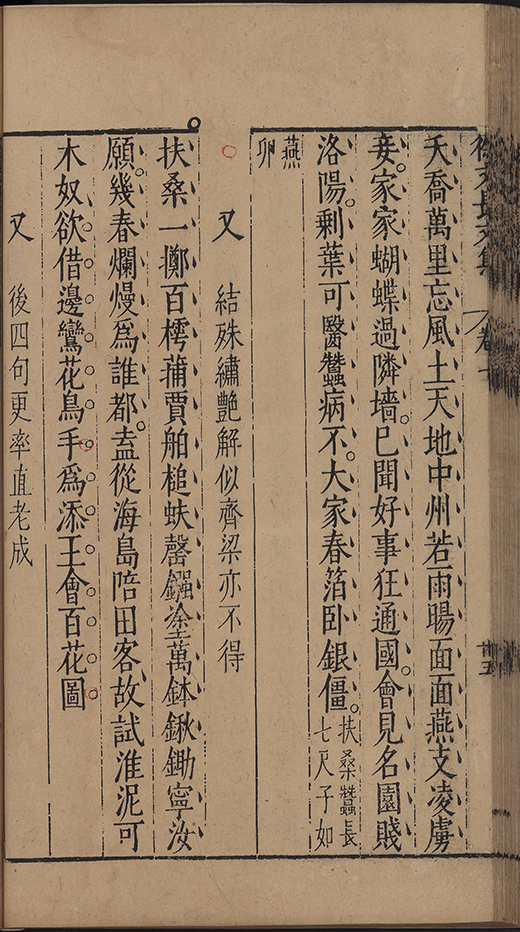 徐文長文集 卷七 廿五
夭喬萬里忘風土天地中州若雨暘面面燕支凌虜
妾家家蝴蝶過隣墻已聞好事狂通國會見名園賤
洛陽剩葉可醫蠶病不大家春箔卧銀僵扶桑蠶長七尺子如
燕卵
又 結殊繡艷解似齊梁亦不得
扶桑一擲百樗蒱賈舶槌蚨罄鏹塗萬鉢鍬鋤寧汝
願幾春爛熳爲誰都盍從海島陪田客故試淮泥可
木奴欲借邊鸞花鳥手爲添王會百花圖
又 後四句更率直老成